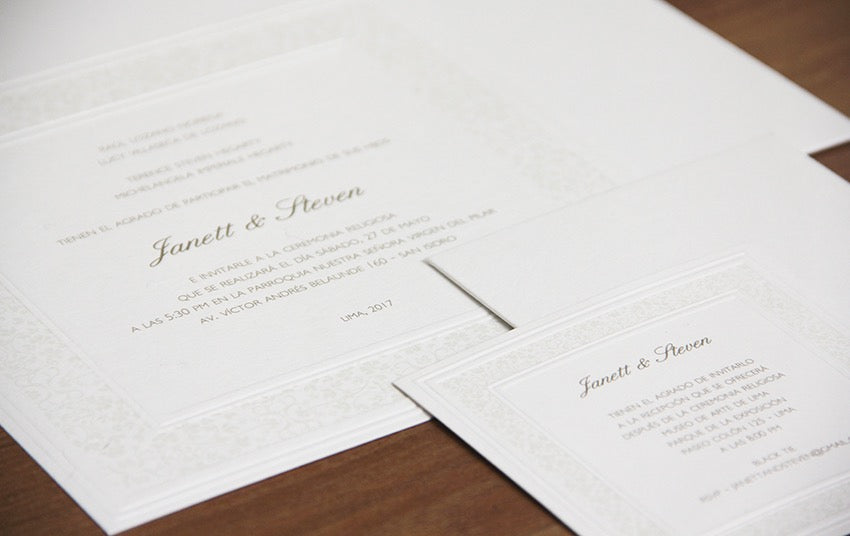 RAÚL LOZANO NORIEGA
LUCY VILLASECA DE LOZANO
TERENCE STEVEN HEGARTY
MICHELANGELA HEGARTY
TIENEN EL AGRADO DE PARTICIPAR EL MATRIMONIO DE SUS HIJOS
Janett & Steven
E INVITARLE A LA CEREMONIA RELIGIOSA
QUE SE REALIZARÁ EL DÍA SÁBADO, 27 DE MAYO
A LAS 5:30 PM EN LA PARROQUIA NUESTRA SEÑORA VIRGEN DEL PILAR
AV. VÍCTOR ANDRÉS BELAUNDE 160 - SAN ISIDRO
LIMA, 2017
Janett & Steven
TIENEN EL AGRADO DE INVITARLO
A LA RECEPCIÓN QUE SE OFRECERÁ
DESPUÉS DE LA CEREMONIA RELIGIOSA
MUSEO DE ARTE DE LIMA
PARQUE DE LA EXPOSICIÓN
PASEO COLÓN 125 - LIMA
A LAS 8:00 PM
BLACK TIE
RSVP - JANETTANDSTEVEN@GMAIL.